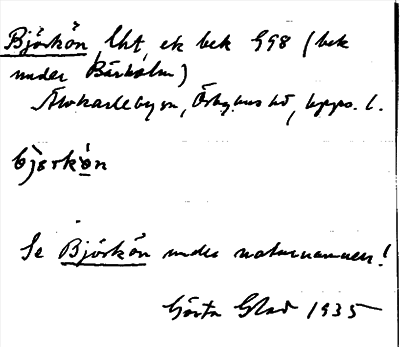 Björkön, lht, ek bek 998 (bek
under Bärholm)
Älvkarleby sn, Örbyhus hd, Upps. l.
bjerkøn
Se Björkön under naturnamnen!
Gösta Glad 1935